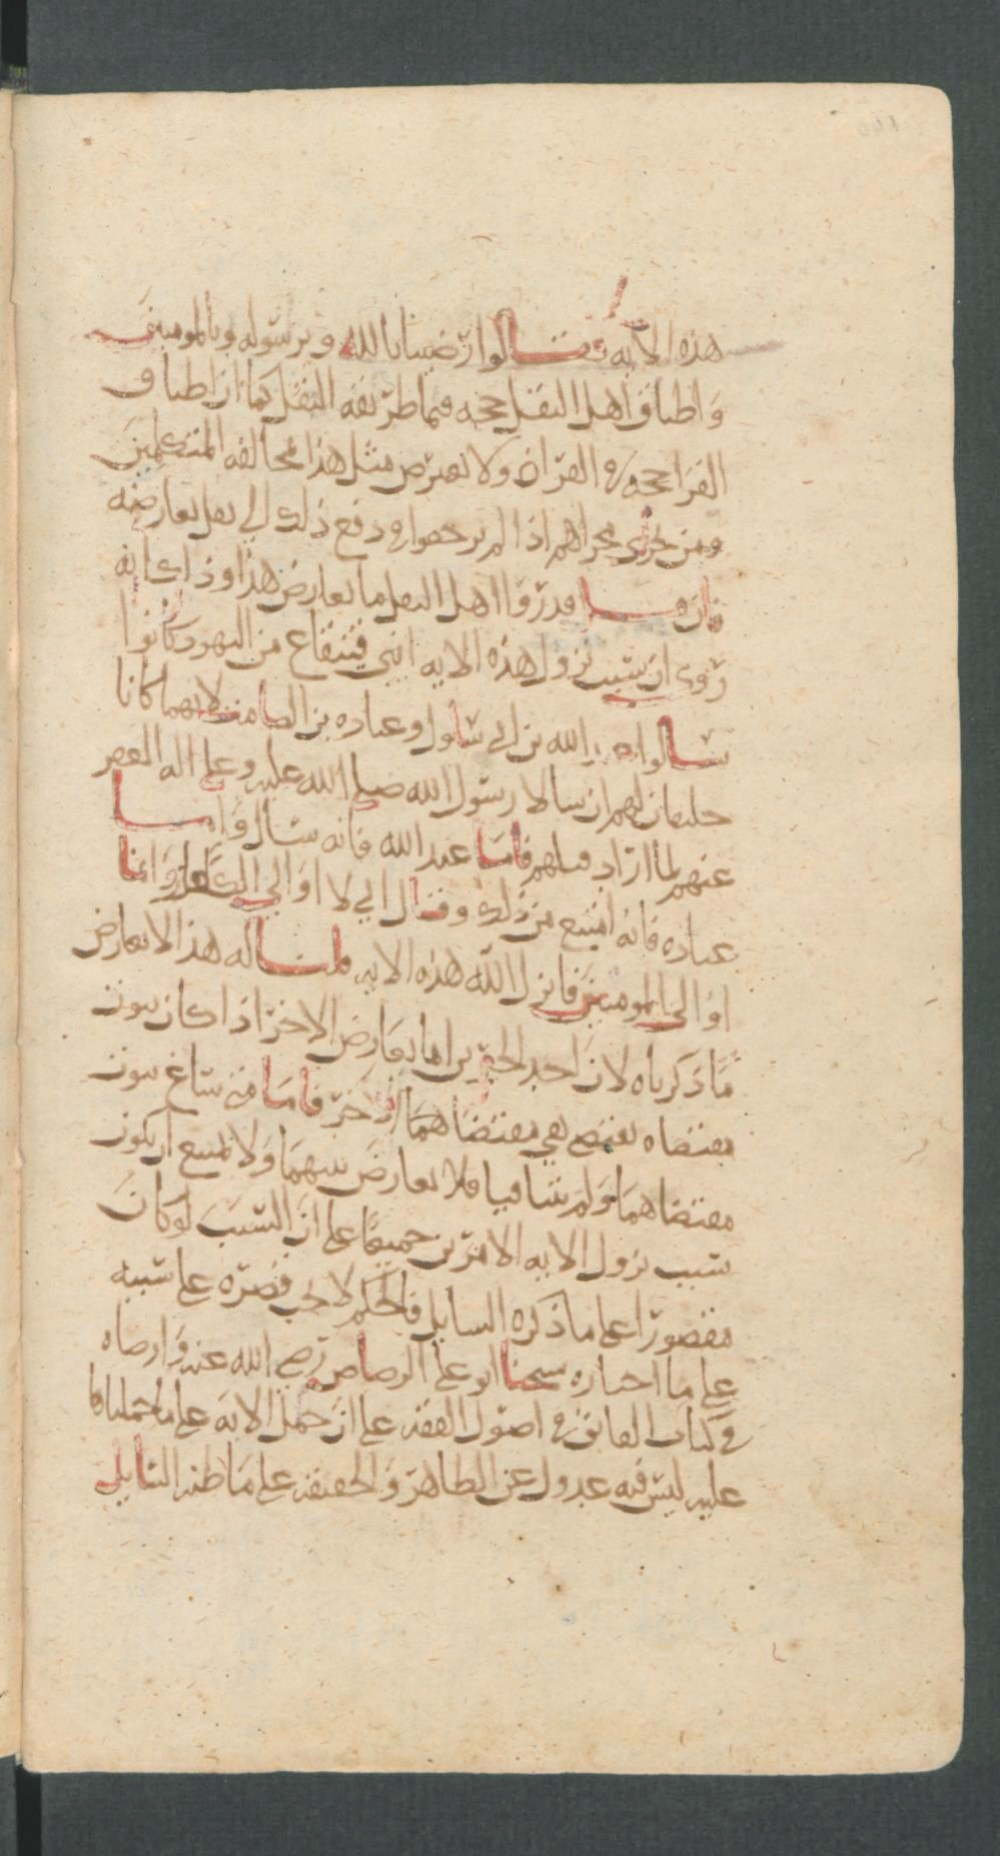 هذه الآية فقالوا رضينا بالله وبرسوله وبالمومنين
واطباق اهل النقل حجه فيما طريقه النقل كما ان اطباق
القرا حجه في القران ولا يعترض مثل هذا مخالفه المتكلمين
ومن جرى مجراهم اذا لم يرجعوا في دفع ذلك الي نقل يعارضه
فان قيل قد رووا اهل النقل ما يعارض هذا وذاك انه
روي ان سبب نزول هذه الايه ان بني قينقاع من اليهود كانوا
سالوا عبد الله بن ابي سلول وعباده بن الصامت لانهما كانا
حليفان لهم ان سالا رسول الله صلى الله عليه وعلى اله العفو
عنهم لما اراد قتلهم فاما عبد الله فانه سال واما
عباده فانه امتنع من ذلك وقال اني لا اوالي الكفار وانما
اوالي المومنين فانزل الله هذه الايه قلنا له هذا لا يعارض
ما ذكرناه لان احد الخبرين انما يعارض الاخر اذا كان ثبوت
مقتضاه يقتضي نفي مقتضا هما الاخر فاما متى ساغ ثبوت
مقتضاهما ولم يتنافيا فلا تعارض بينهما ولا يمتنع ان يكون
سبب نزول الايه الامرين جميعا على ان السبب لو كان
مقصورا على ما ذكره السايل فالحكم لا يجب قصره على سببه
على ما اختاره شيخنا ابو علي الرصاص رضي الله عنه وارضاه
في كتاب الفائق في اصول الفقه على ان حمل الايه على ما حملناها
عليه ليس فيه عدول عن الظاهر والحقيقه على ما ظنه السايل